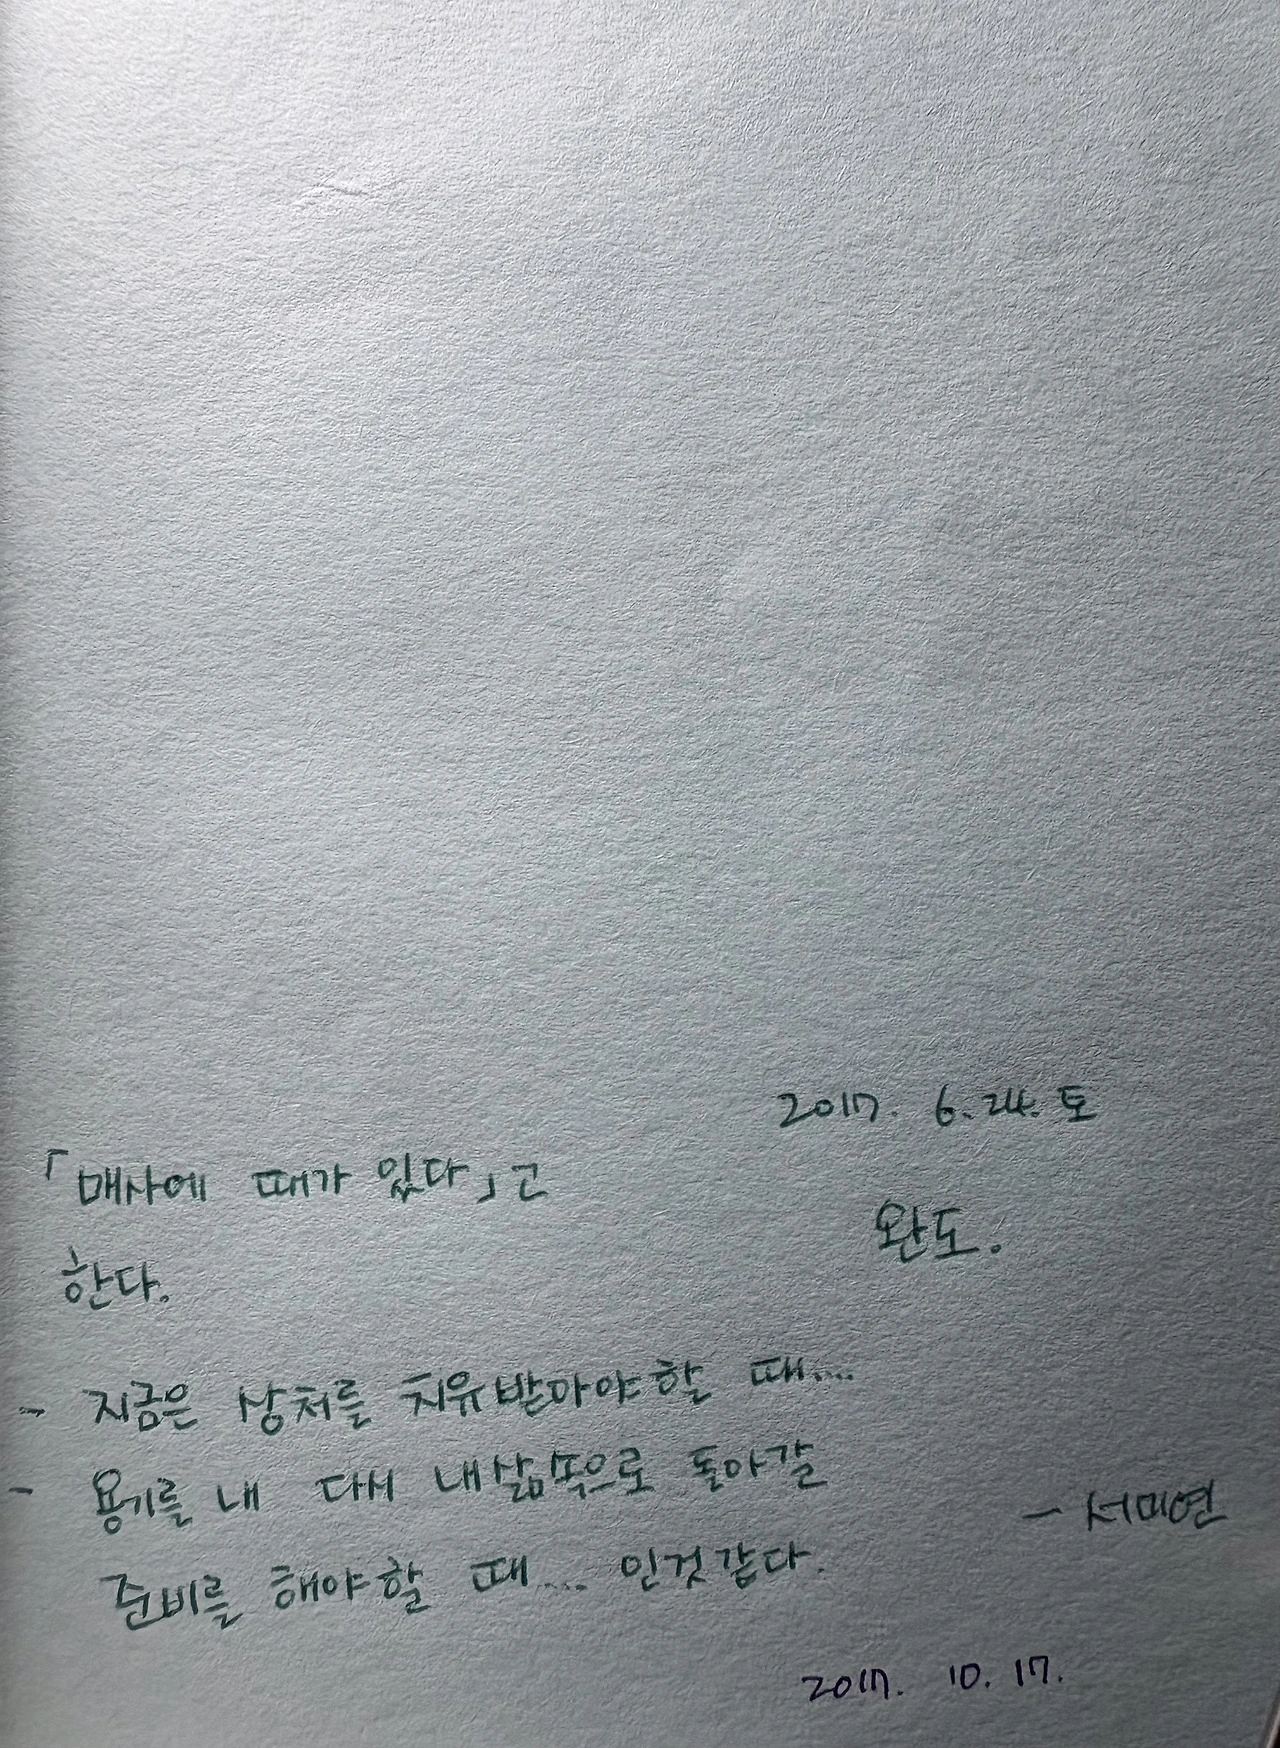 2017. 6. 24. 토
「매사에 때가 있다」고
완도.
한다.
- 지금은 상처를 치유받아야할 때....
- 용기를 내 다시 내삶쪽으로 돌아갈
- 서미연
준비를 해야할 때.... 인것같다.
2017. 10. 17.